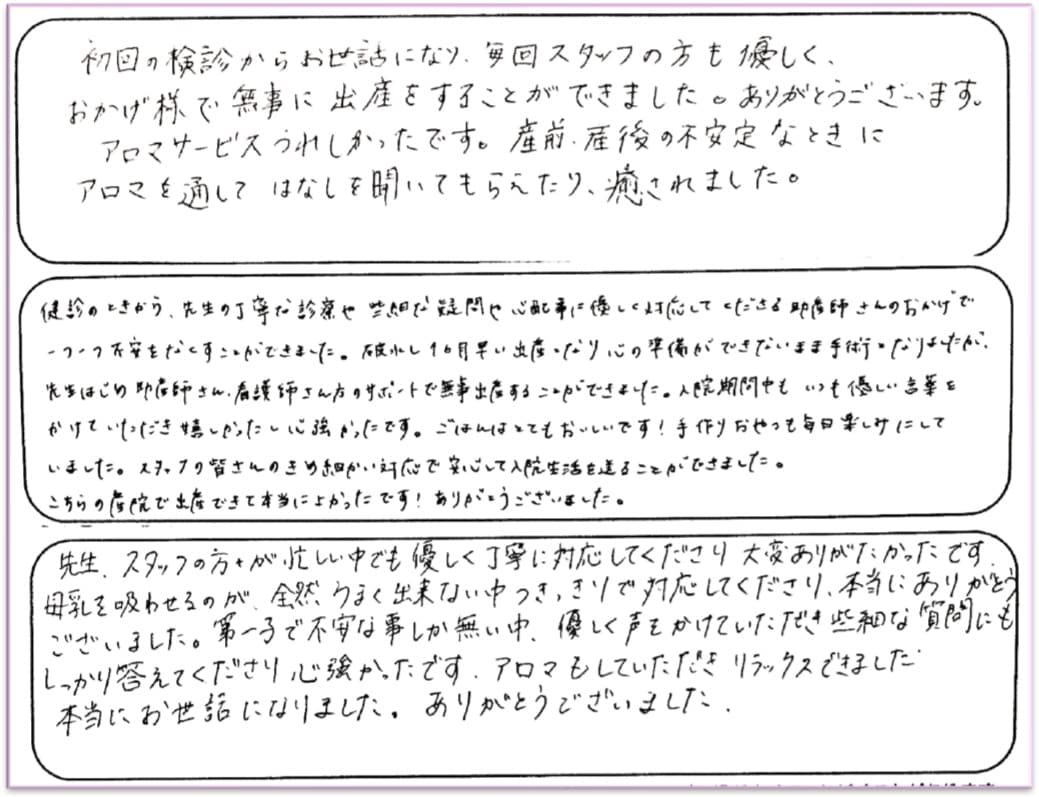 初回の検診からお世話になり、毎回スタッフの方も優しく、
おかげ様で無事に出産をすることができました。ありがとうございます。
アロマサービスうれしかったです。産前・産後の不安定なときに
アロマを通してはなしを聞いてもらえたり、癒されました。
健診のときから、先生の丁寧な診察や些細な疑問や心配事に優しく対応してくださる助産師さんのおかげで
一つ一つ不安をなくすことができました。破水し1ヶ月早い出産となり心の準備ができないまま手術となりましたが、
先生はじめ助産師さん、看護師さん方のサポートで無事出産することができました。入院期間中もいつも優しい言葉を
かけていただき嬉しかったし心強かったです。ごはんはとてもおいしいです!手作りおやつも毎日楽しみにして
いました。スタッフの皆さんのきめ細かい対応で安心して入院生活を送ることができました。
こちらの産院で出産できて本当によかったです!ありがとうございました。
先生、スタッフの方々が忙しい中でも優しく丁寧に対応してくださり大変ありがたかったです。
母乳を吸わせるのが、全然うまく出来ない中つきっきりで対応してくださり、本当にありがとう
ございました。第一子で不安な事しか無い中、優しく声をかけていただき些細な質問にも
しっかり答えてくださり心強かったです。アロマもしていただきリラックスできました。
本当にお世話になりました。ありがとうございました。